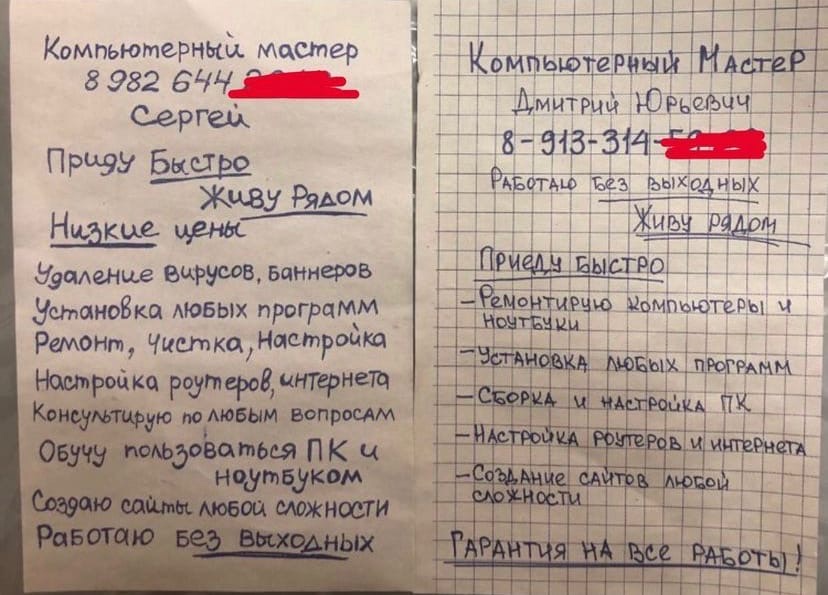 Компьютерный мастер
8 982 644
Сергей
Приду Быстро
Живу Рядом
Низкие цены
Удаление вирусов, баннеров
Установка любых программ
Ремонт, Чистка, Настройка
Настройка роутеров, интернета
Консультирую по любым вопросам
Обучу пользоваться ПК и
ноутбуком
Создаю сайты любой сложности
Работаю Без выходных
Компьютерный Мастер
Дмитрий Юрьевич
8-913-314-
Работаю без выходных
Живу рядом
Приеду быстро
-Ремонтирую компьютеры и
ноутбуки
-Установка любых программ
-Сборка и настройка ПК
-Настройка роутеров и интернета
-Создание сайтов любой
сложности
Гарантия на все работы!